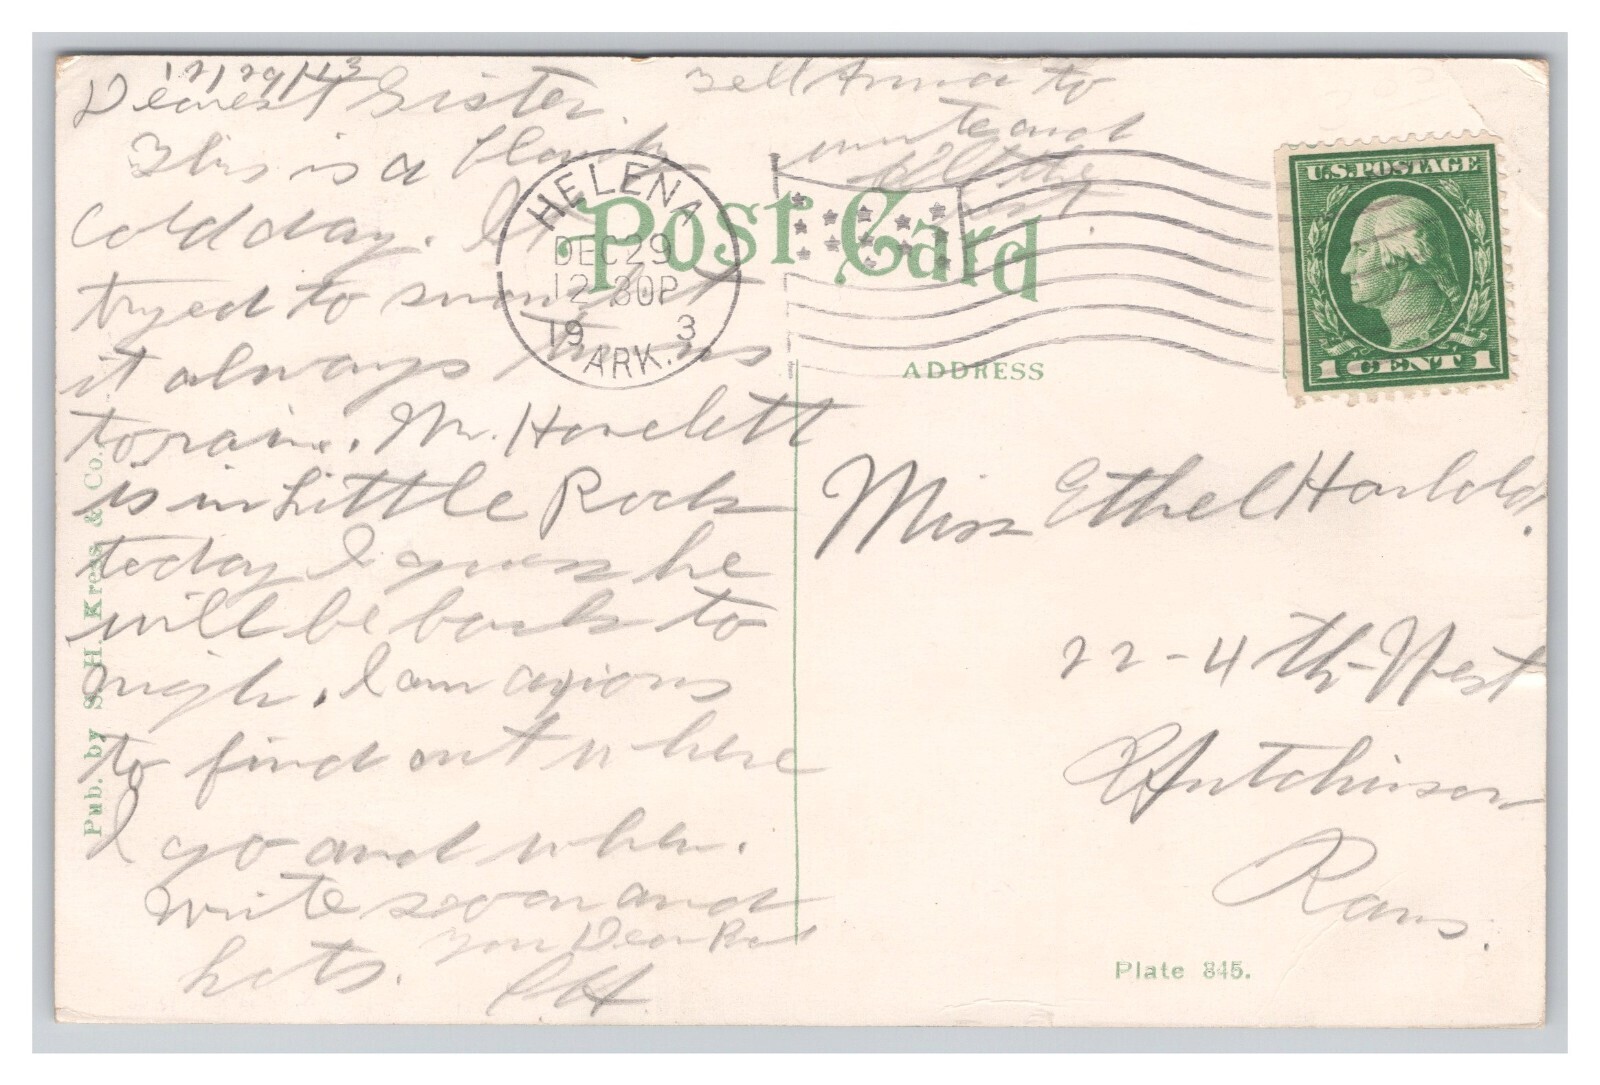 12/29/13
Dearest Sister.
This is a
cold day. It
tried to snow but
it always turns
to rain. Mr. Howlett
is in Little Rock
today I guess he
will be back to
nigh. I am axious
to find out where
I go and when.
write soon and
lots. Your Dear
Tell Anna to
write and
all the
rest
HELENA
DEC 29
12 30P
19 3
ARK.
Post Card
ADDRESS
U.S. POSTAGE
1 CENT 1
Miss Ethel
22-4th-West
Hutchinson
Kans.
Pub. by S. H. Kress & Co.
Plate 845.